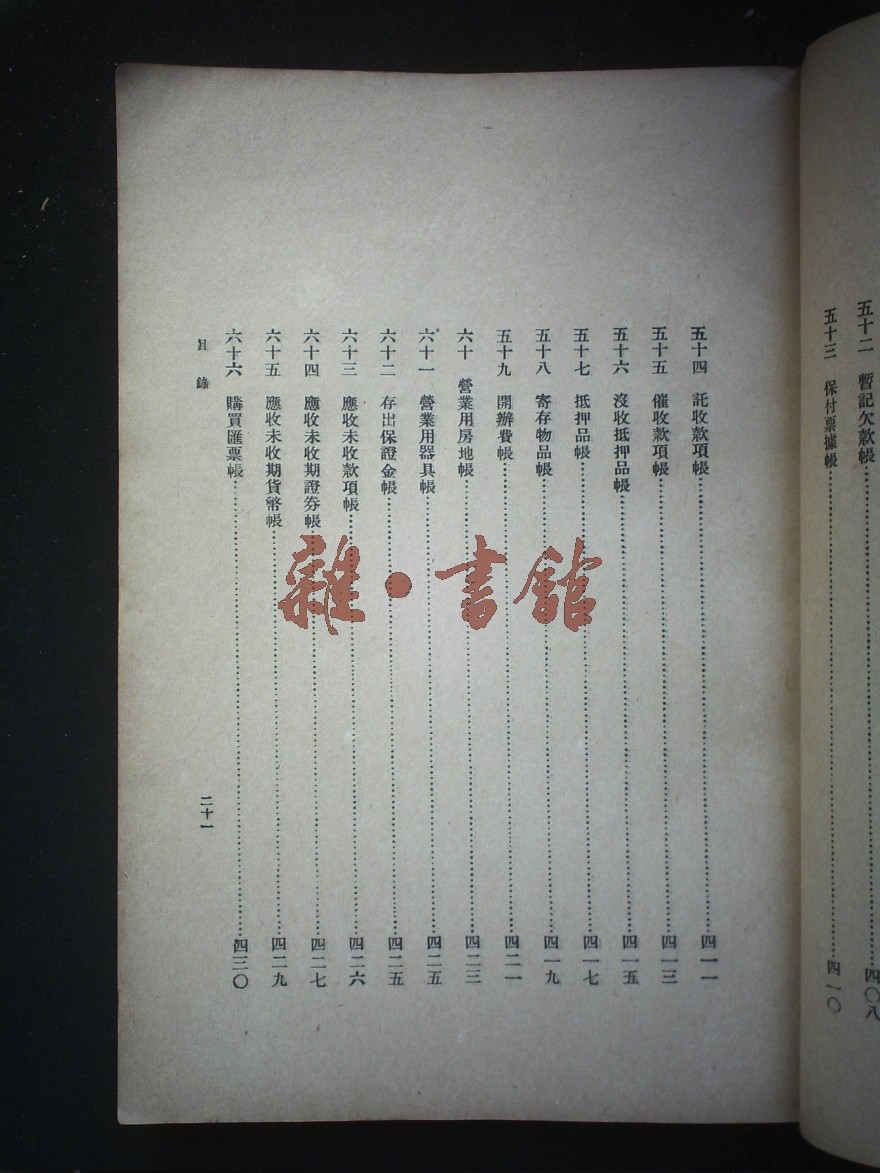 五十二　暫記欠款帳……四〇八
五十三　保付票據帳……四一〇
五十四　託收款項帳……四一一
五十五　催收款項帳……四一三
五十六　沒收抵押品帳……四一五
五十七　抵押品帳……四一七
五十八　寄存物品帳……四一九
五十九　開辦費帳……四二一
六十　營業用房地帳……四二三
六十一　營業用器具帳……四二五
六十二　存出保證金帳……四二五
六十三　應收未收款項帳……四二六
六十四　應收未收期證券帳……四二七
六十五　應收未收期貨幣帳……四二九
六十六　購買匯票帳……四三〇
目錄　二十一
雜·書館